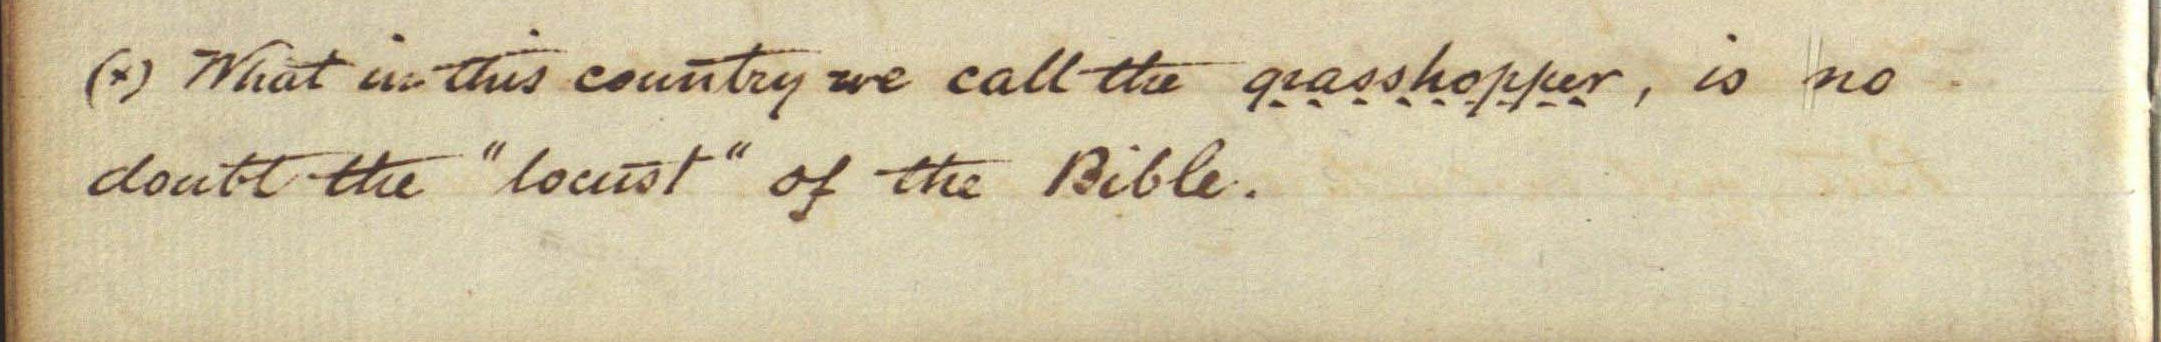 (x) What in this country we call the grasshopper, is no
doubt the "locust" of the Bible.